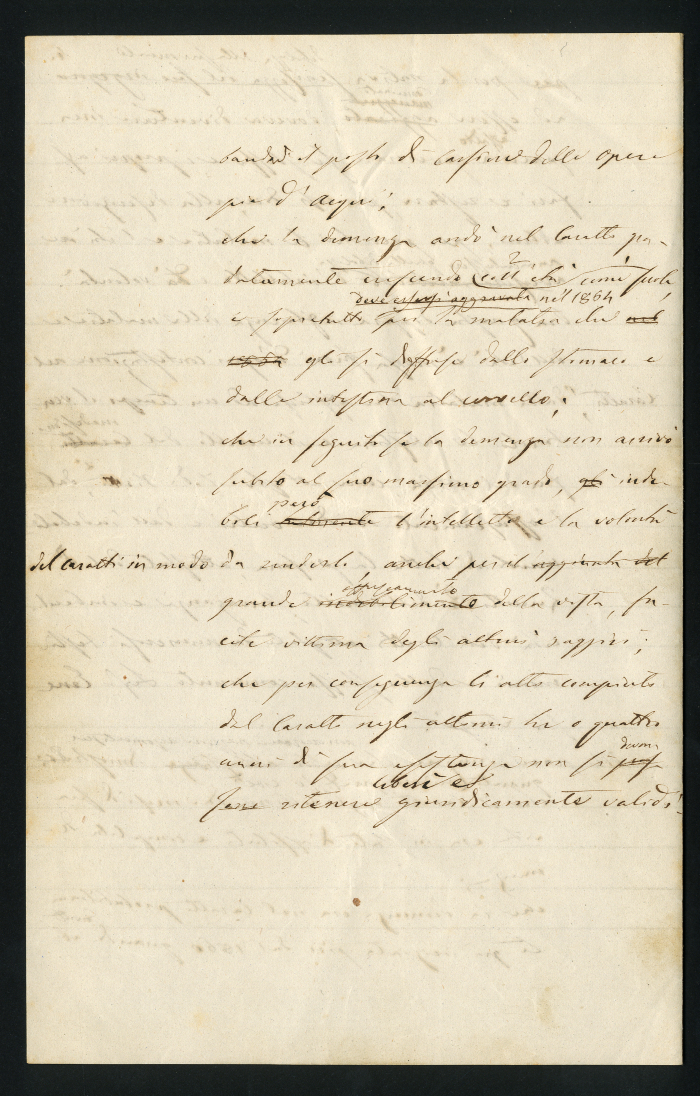 bandò il posto di Cassiere delle opere
pie d'Acqui;
che la demenza andò nel Caratti gra-
datamente crescendo che come suole,
deve essersi aggravata nel 1864
e soprattutto per la malattia che nel
1864 gli si diffuse dallo stomaco e
dalle intestina al cervello;
che in seguito se la demenza non arrivò
subito al suo massimo grado, gli inde-
però
bolì l'intelletto e la volontà
del Caratti in modo da renderlo, anche per l'aggiunta del
offuscamento
grande indebolimento della vista, fa-
cile vittima degli altrui raggiri;
che per conseguenza li atti compiuti
dal Caratti negli ultimi tre o quattro
anni di sua esistenza non si devon
liberi e
ritenere giuridicamente validi.